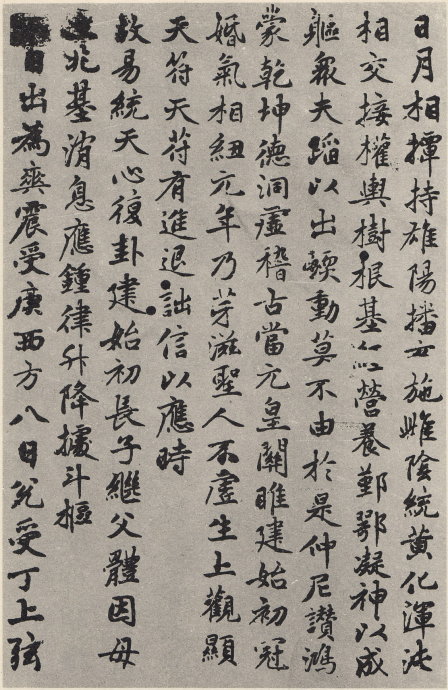 日月相撢持雄陽播玄施雌陰統黄化渾沌
相交接權輿樹根基經營養鄞鄂凝神以成
軀衆夫蹈以出蝡動莫不由於是仲尼讚鴻
蒙乾坤德洞虛稽古當元皇關雎建始初冠
婚氣相紐元年乃芽滋聖人不虛生上觀顯
天符天苻有進退詘信以應時
故易統天心復卦建始初長子繼父體因母
立兆基消息應鍾律升降據斗樞
日出爲爽震受庚西方八日兌受丁上弦